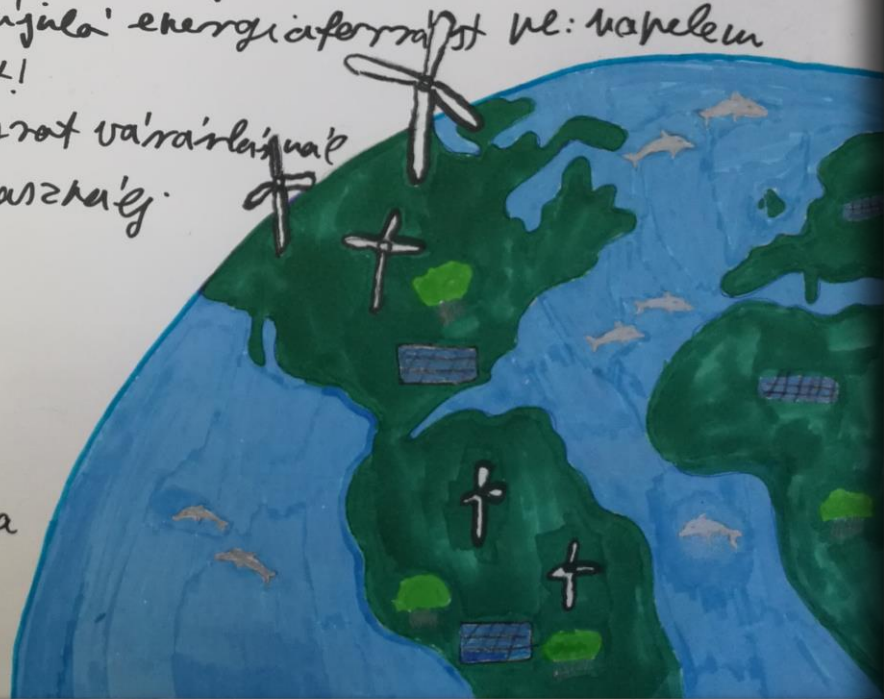 újuló energiaforrást pl: napelem
k!
rot vásárlásnál
asználj.
a